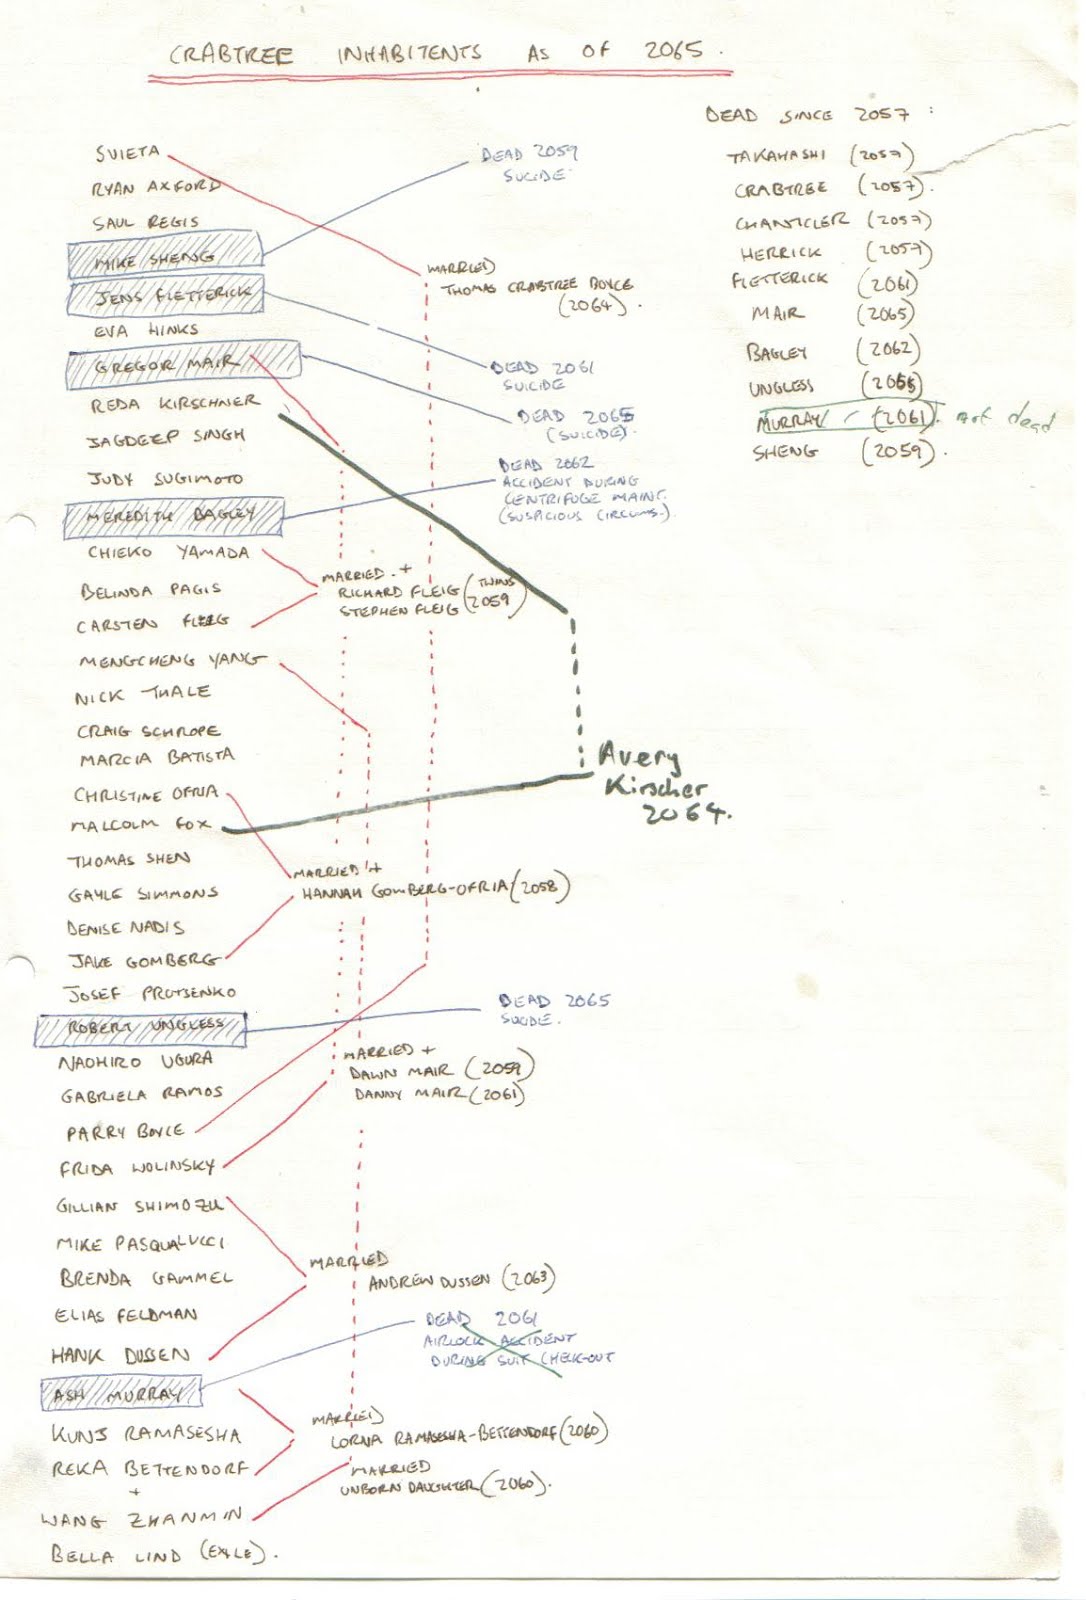 CRABTREE INHABITENTS AS OF 2065.
DEAD SINCE 2057 :
TAKAHASHI (2057)
CRABTREE (2057).
CHANTICLER (2057)
HERRICK (2057)
FLETTERICK (2061)
MAIR (2065)
BAGLEY (2062)
UNGLESS (2065)
MURRAY (2061). not dead
SHENG (2059).
SVIETA
RYAN AXFORD
SAUL REGIS
MIKE SHENG
JENS FLETTERICK
EVA HINKS
GREGOR MAIR
REDA KIRSCHNER
JAGDEEP SINGH
JUDY SUGIMOTO
MEREDITH BAGLEY
CHIEKO YAMADA
BELINDA PAGIS
CARSTEN FLEIG
MENGCHENG YANG
NICK THALE
CRAIG SCHROPE
MARCIA BATISTA
CHRISTINE OFRIA
MALCOLM FOX
THOMAS SHEN
GAYLE SIMMONS
DENISE NADIS
JAKE GOMBERG
JOSEF PROTSENKO
ROBERT UNGLESS
NAOHIRO UGURA
GABRIELA RAMOS
PARRY BOYCE
FRIDA WOLINSKY
GILLIAN SHIMOZU
MIKE PASQUALUCCI
BRENDA GAMMEL
ELIAS FELDMAN
HANK DUSSEN
ASH MURRAY
KUNJ RAMASESHA
REKA BETTENDORF
+
WANG ZHANMIN
BELLA LIND (EXILE).
DEAD 2059
SUCIDE
MARRIED
THOMAS CRABTREE BOYCE
(2064).
DEAD 2061
SUICIDE
DEAD 2065
(SUICIDE).
DEAD 2062
ACCIDENT DURING
CENTRIFUGE MAINT.
(SUSPICIOUS CIRCUMS.)
MARRIED. +
RICHARD FLEIG (TWINS
STEPHEN FLEIG 2059)
Avery
Kirscher
2064.
MARRIED +
HANNAH GOMBERG-OFRIA (2058)
DEAD 2065
SUCIDE.
MARRIED +
DAWN MAIR (2059)
DANNY MAIR (2061)
MARRIED
ANDREW DUSSEN (2063)
DEAD 2061
AIRLOCK ACCIDENT
DURING SUIT CHECK-OUT
MARRIED
LORNA RAMASESHA-BETTENDORF (2060)
MARRIED
UNBORN DAUGHTER (2060).